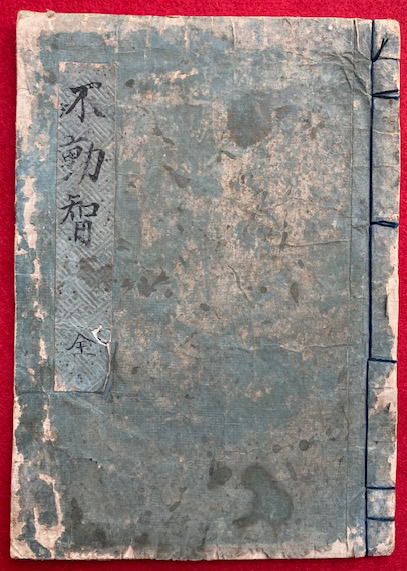 不動智
全